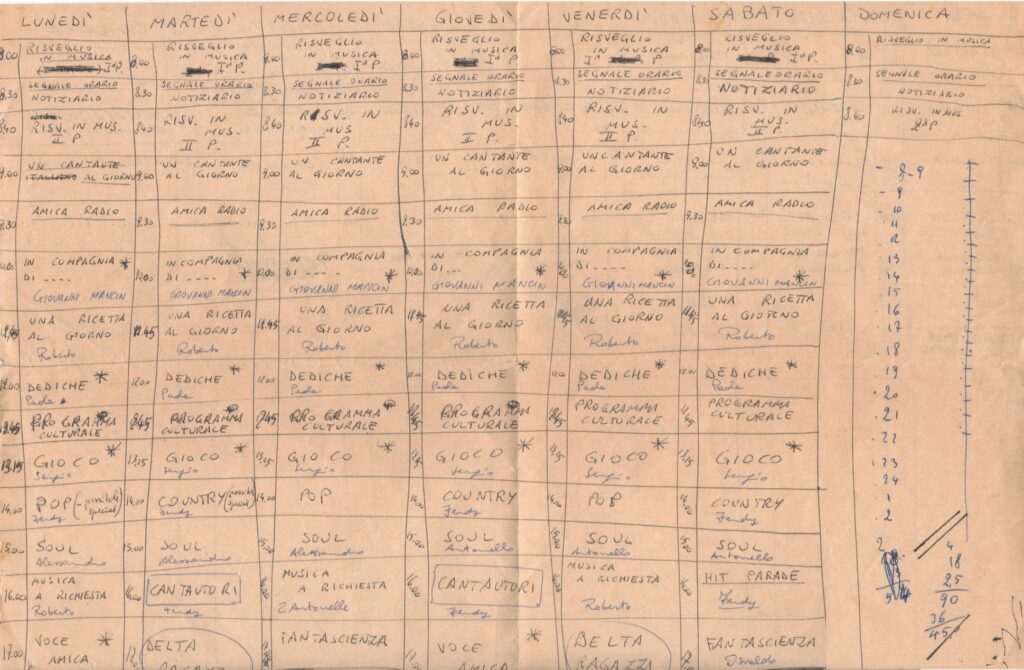 LUNEDI' MARTEDI' MERCOLEDI' GIOVEDI' VENERDI' SABATO DOMENICA
8.00 RISVEGLIO IN MUSICA Iª P.
8.00 RISVEGLIO IN MUSICA Iª P.
RISVEGLIO IN MUSICA Iª P.
8.00 RISVEGLIO IN MUSICA Iª P.
8.00 RISVEGLIO IN MUSICA Iª P.
8.00 RISVEGLIO IN MUSICA Iª P.
8.00 RISVEGLIO IN MUSICA
8.30 SEGNALE ORARIO NOTIZIARIO
8.30 SEGNALE ORARIO NOTIZIARIO
8.30 SEGNALE ORARIO NOTIZIARIO
8.30 SEGNALE ORARIO NOTIZIARIO
8.30 SEGNALE ORARIO NOTIZIARIO
8.30 SEGNALE ORARIO NOTIZIARIO
SEGNALE ORARIO NOTIZIARIO
8.40 RISV. IN MUS. II P.
8.40 RISV. IN MUS. II P.
8.40 RISV. IN MUS II P.
8.40 RISV. IN MUS. II P.
8.40 RISV. IN MUS. II P.
8.40 RISV. IN MUS. II P.
8.40 RISV. IN MUS.
9.00 UN CANTANTE ITALIANO AL GIORNO
9.00 UN CANTANTE AL GIORNO
9.00 UN CANTANTE AL GIORNO
9.00 UN CANTANTE AL GIORNO
9.00 UN CANTANTE AL GIORNO
9.00 UN CANTANTE AL GIORNO
9.30 AMICA RADIO
9.30 AMICA RADIO
9.30 AMICA RADIO
9.30 AMICA RADIO
9.30 AMICA RADIO
9.30 AMICA RADIO
IN COMPAGNIA * DI .... GIOVANNI MANCIN
IN COMPAGNIA DI .... * GIOVANNI MANCIN
10.00 IN COMPAGNIA DI .... * GIOVANNI MANCIN
IN COMPAGNIA DI ... * GIOVANNI MANCIN
IN COMPAGNIA DI .... * GIOVANNI MANCIN
IN COMPAGNIA DI .... * GIOVANNI MANCIN
11.45 UNA RICETTA AL GIORNO Roberto
11.45 UNA RICETTA AL GIORNO Roberto
11.45 UNA RICETTA AL GIORNO Roberto
11.45 UNA RICETTA AL GIORNO Roberto
UNA RICETTA AL GIORNO Roberto
UNA RICETTA AL GIORNO Roberto
12.00 DEDICHE * Paola
12.00 DEDICHE * Paola
12.00 DEDICHE * Paola
12.00 DEDICHE * Paola
12.00 DEDICHE * Paola
12.00 DEDICHE * Paola
12.45 PROGRAMMA CULTURALE
12.45 PROGRAMMA CULTURALE
12.45 PROGRAMMA CULTURALE
PROGRAMMA CULTURALE
PROGRAMMA CULTURALE
PROGRAMMA CULTURALE
13.15 GIOCO * Sergio
13.15 GIOCO * Sergio
13.15 GIOCO * Sergio
GIOCO * Sergio
GIOCO * Sergio
GIOCO * Sergio
14.00 POP Fendy
14.00 COUNTRY Fendy
14.00 POP
14.00 COUNTRY Fendy
14.00 POP
14.00 COUNTRY Fendy
15.00 SOUL Alessandro
15.00 SOUL Alessandro
15.00 SOUL Alessandro
15.00 SOUL Antonello
15.00 SOUL Antonello
15.00 SOUL Antonello
16.00 MUSICA A RICHIESTA Roberto
16.00 CANTAUTORI Fendy
16.00 MUSICA A RICHIESTA Antonello
16.00 CANTAUTORI Fendy
16.00 MUSICA A RICHIESTA Roberto
16.00 HIT PARADE Fendy
17.00 VOCE * AMICA
DELTA
FANTASCIENZA
VOCE * AMICA
DELTA RAGAZZI
FANTASCIENZA Osvaldo
8-9
9
10
11
12
13
14
15
16
17
18
19
20
21
22
23
24
1
2
4
18
25
90
36